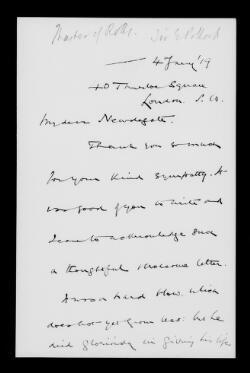 Master of Rolls. Sir E Pollock
4 Jany '19
40 Thurloe Square
London. S.W.
My dear Newdegate.
Thank you so much
for your kind sympathy. It
was good of you to write and
I can to acknowledge such
a thoughtful & welcome letter.
It was a hard blow which
does not yet grow less: but he
died gloriously in giving his life